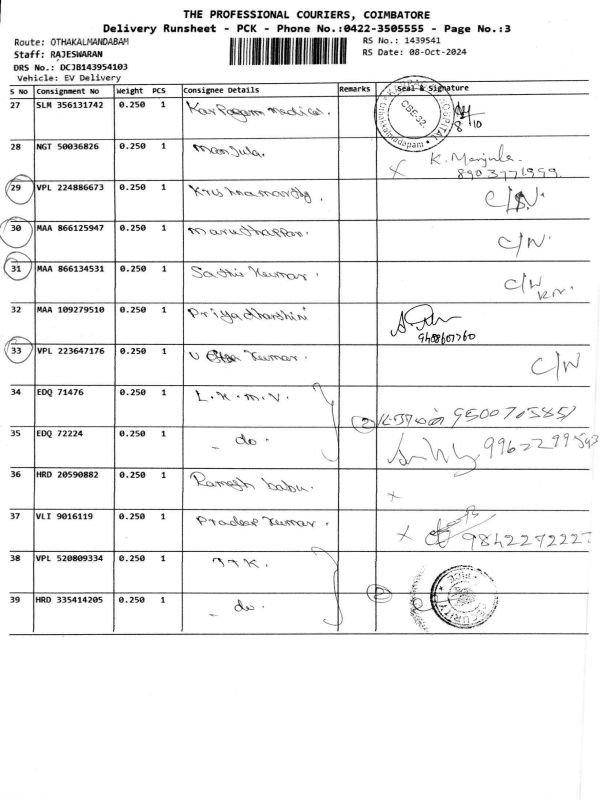 THE PROFESSIONAL COURIERS, COIMBATORE
Delivery Runsheet - PCK - Phone No.:0422-3505555 - Page No.:3
Route: OTHAKALMANDABAM
RS No.: 1439541
Staff: RAJESWARAN
RS Date: 08-Oct-2024
DRS No.: DCJB143954103
Vehicle: EV Delivery
S No Consignment No Weight PCS Consignee Details Remarks Seal & Signature
27 SLM 356131742 0.250 1 Karpagam medical. CBE-32
28 NGT 50036826 0.250 1 Manjula. X K. Manjula 8903771999
29 VPL 224886673 0.250 1 Krishnamorthy.
30 MAA 866125947 0.250 1 Maruthappan. C/N.
31 MAA 866134531 0.250 1 Sathis Kumar.
32 MAA 109279510 0.250 1 Priyadharshini 9408607760
33 VPL 223647176 0.250 1 Kumar. C/N
34 EDQ 71476 0.250 1 L.K.M.V. 2
35 EDQ 72224 0.250 1 - do.
36 HRD 20590882 0.250 1 Ramesh babu. X
37 VLI 9016119 0.250 1 Pradeep Kumar. X 9842272227
38 VPL 520809334 0.250 1 TTK.
39 HRD 335414205 0.250 1 - do. 2